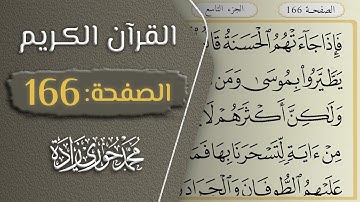 القرآن الكريم
الصفحة: 166
محمد خوري زاده
الصفحة 166
الجزء التاسع
فَإِذَا جَآءَتْهُمُ ٱلْحَسَنَةُ قَا
يَطَّيَّرُوا۟ بِمُوسَىٰ وَمَن
وَلَٰكِنَّ أَكْثَرَهُمْ لَا
مِنْ ءَايَةٍ لِّتَسْحَرَنَا بِهَا فَمَا
عَلَيْهِمُ ٱلطُّوفَانَ وَٱلْجَرَادَ